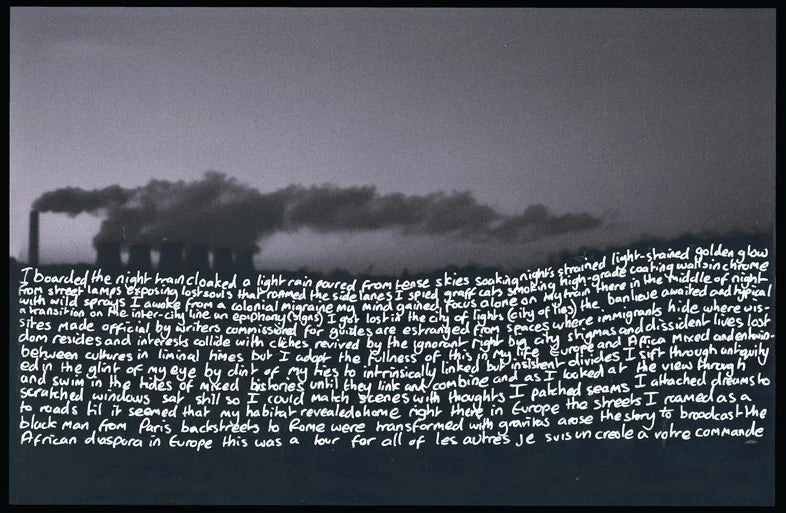 I boarded the night train cloaked a light rain poured from tense skies soaking nights strained light-stained golden glow
from street lamps exposing lost souls that roamed the side lanes I spied graff cats smoking high-grade coating walls in chrome
with wild sprays I awoke from a colonial migraine my mind gained focus alone on my train there in the middle of night
a transition on the inter-city line an epiphany (signs) I got lost in the city of lights (city of ties) the banlieue awaited and typical
sites made official by writers commissioned for guides are estranged from spaces where immigrants hide where wis-
dom resides and interests collide with cliches revived by the ignorant right big city stigmas and dissident lives lost
between cultures in liminal times but I adopt the fullness of this in my life Europe and Africa mixed and entwin-
ed in the glint of my eye by dint of my ties to intrinsically linked but insistent divides I sift through antiquity
and swim in the tides of mixed histories until they link and combine and as I looked at the view through
scratched windows sat still so I could match scenes with thoughts I patched seams I attached dreams to
to roads til it seemed that my habitat revealed a home right there in Europe the streets I roamed as a
black man from Paris backstreets to Rome were transformed with gravitas arose the story to broadcast the
African diaspora in Europe this was a tour for all of les autres je suis un creole a votre commande